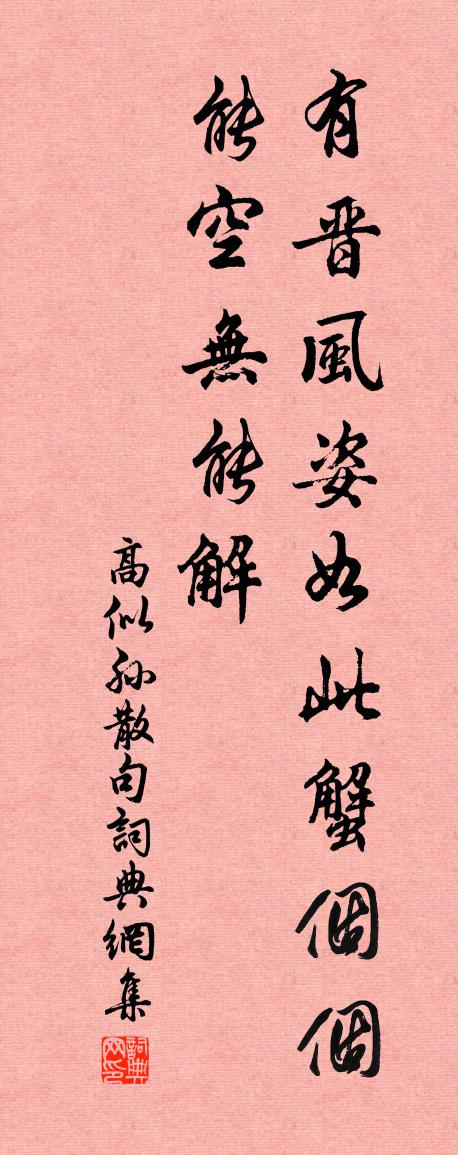 有晋風姿如此蟹個個
能空無能解
高似孫散句詞典網集
詞典网印